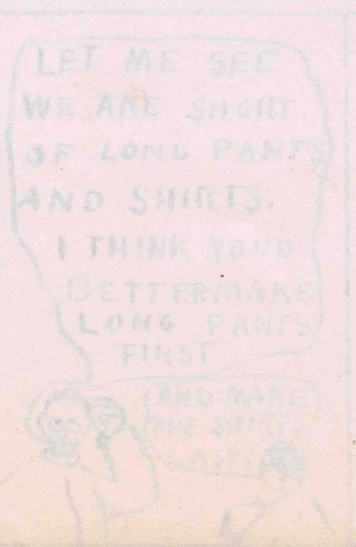 LET ME SEE
WE ARE SHORT
OF LONG PANTS
AND SHIRTS.
I THINK YOUD
BETTERMAKE
LONG PANTS
FIRST
(AND MAKE
THE SHIRTS
LAST)